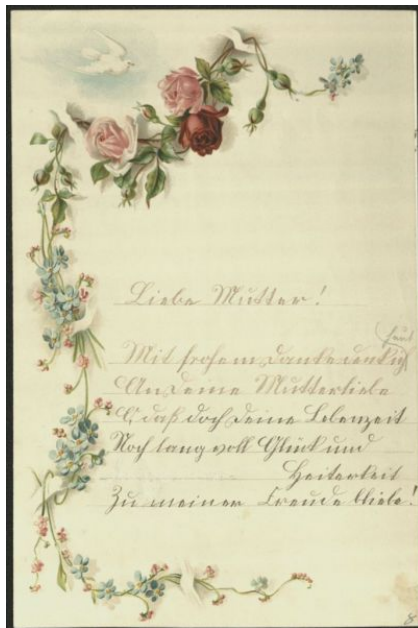 Liebe Mutter!
heut
Mit frohem Danke denk ich
An Deine Mutterliebe
O, daß doch Deine Lebenzeit
Noch lang voll Glück und
Heiterkeit
Zu meiner Freude bliebe!